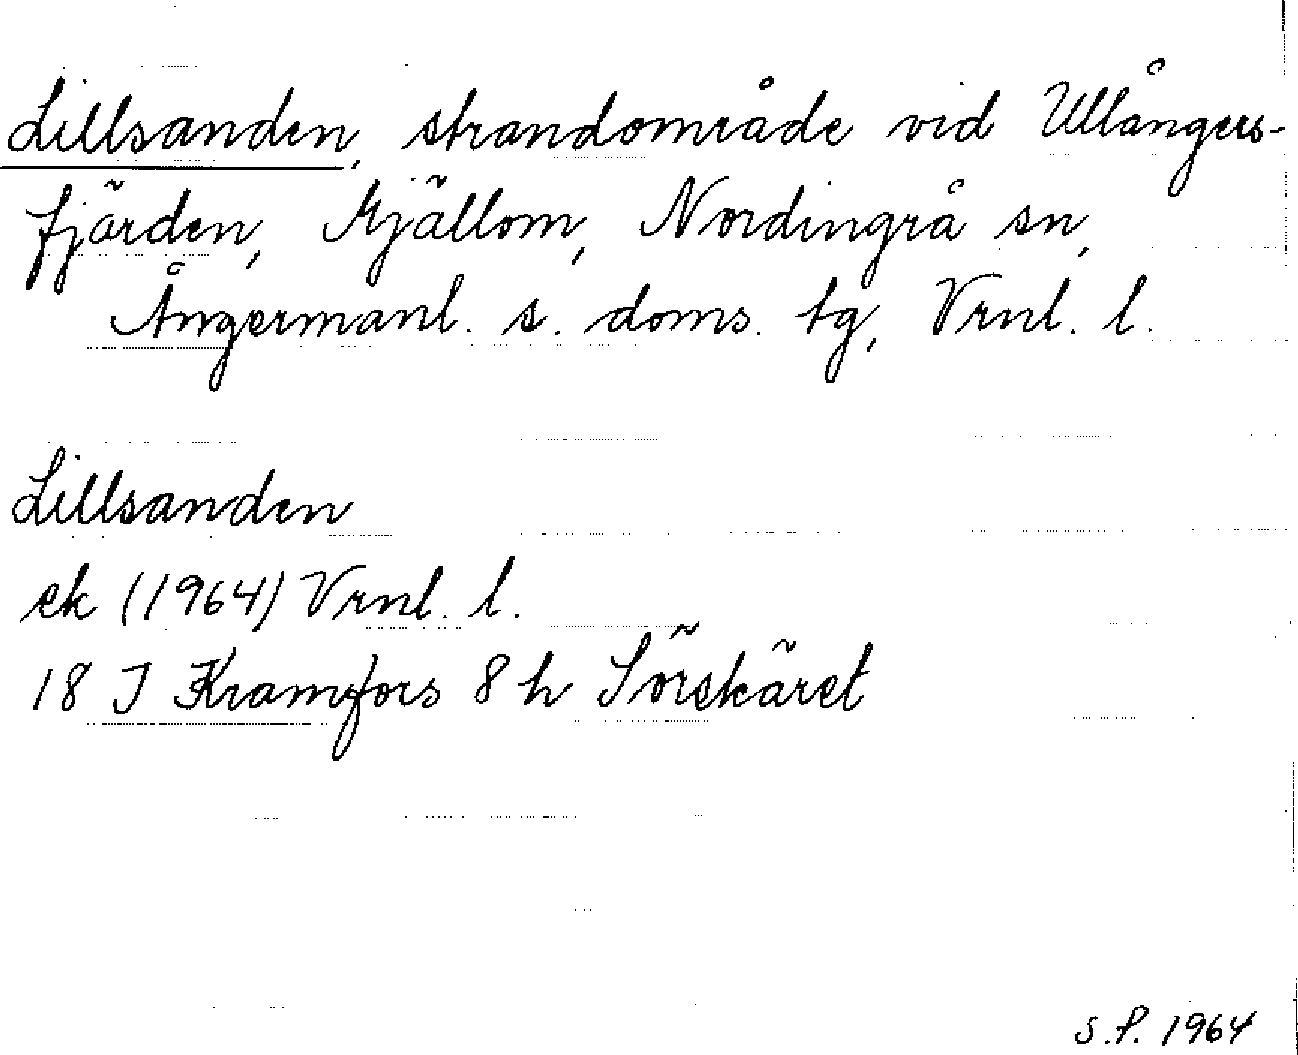 Lillsanden, strandområde vid Ullångers-
fjärden, Mjällom, Nordingrå sn,
Ångermanl. s. doms. tg, Vrnl. l.
Lillsanden
ek (1964) Vrnl. l.
18 I Kramfors 8 h Sörskäret
S.P. 1964